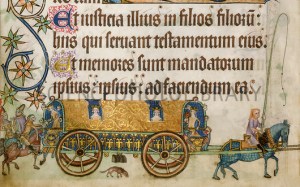 Et iusticia illius in filios filiorū:
his qui seruant testamentum eius.
Et memores sunt mandatorum
ipsius: ipsius, ad faciendum ea.
LIBRARY